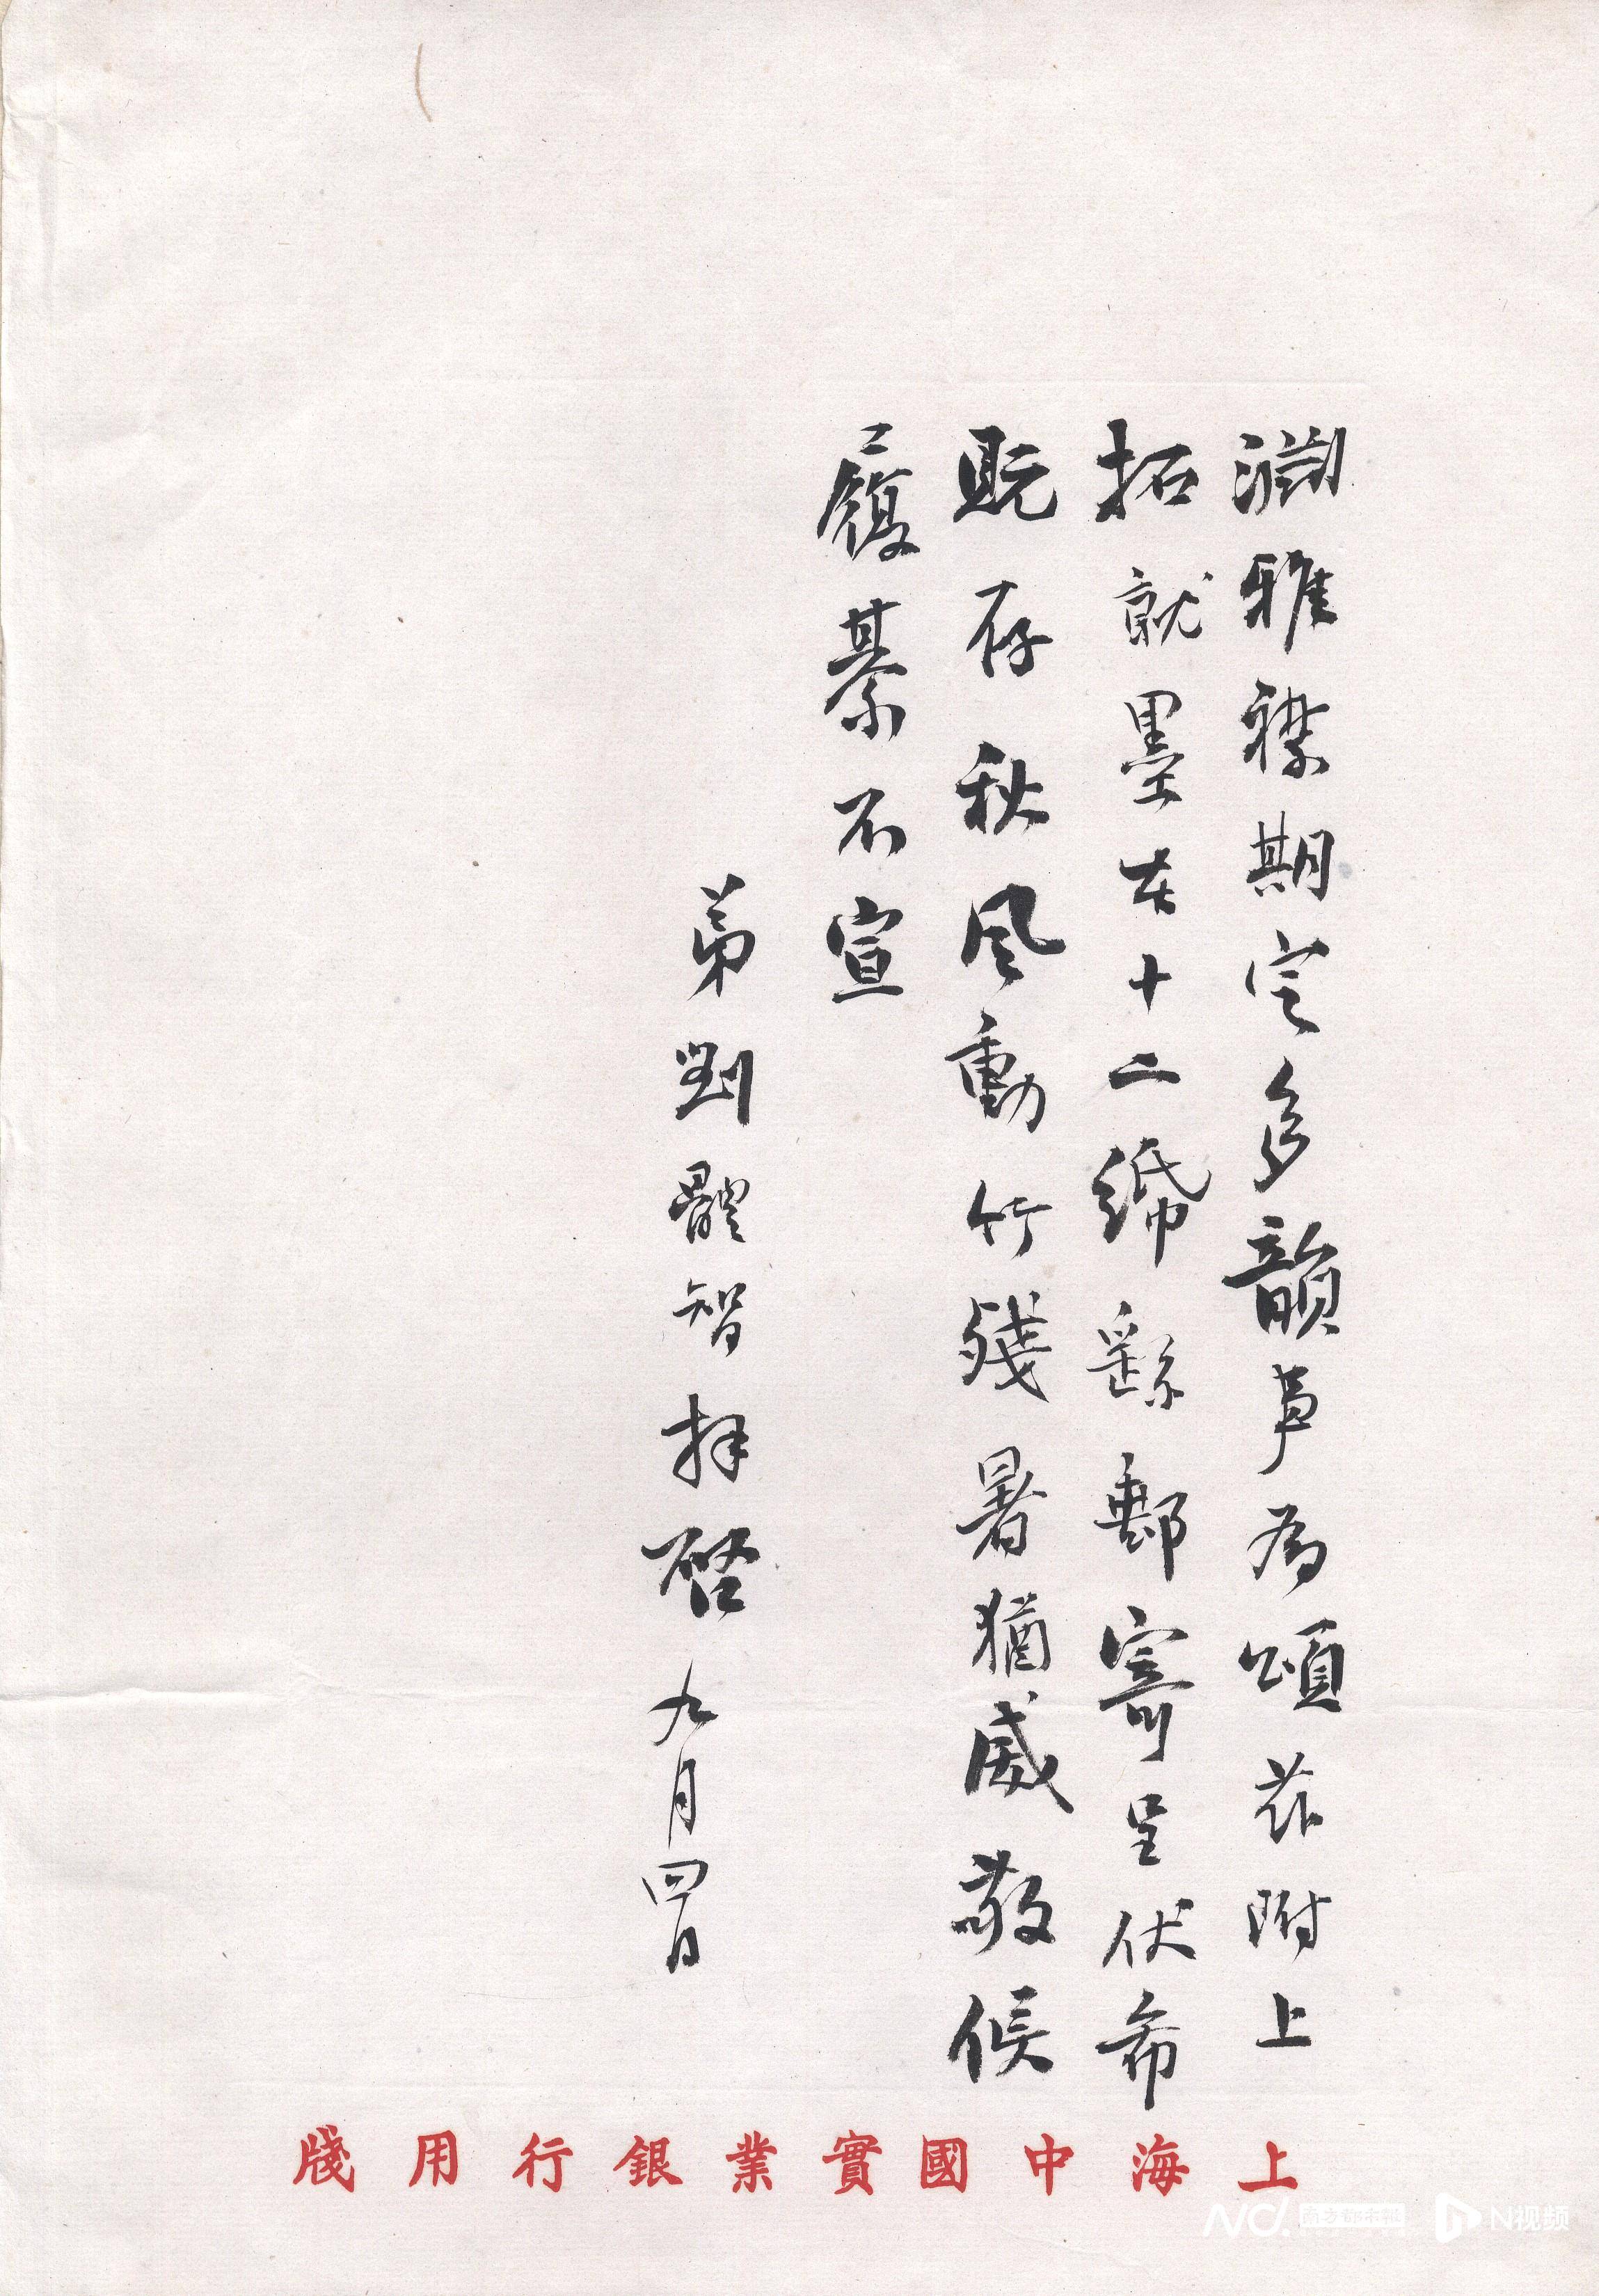 淵雅襟期定多韻事為頌茲附上
拓就墨本十二紙繇郵寄呈伏希
貺存秋風動竹殘暑猶威敬候
履綦不宣
弟劉體智拜啓九月四日
上海中國實業銀行用牋
南方都市報
N视频